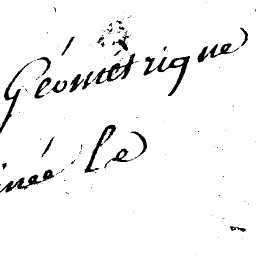 Géométrique
inée le